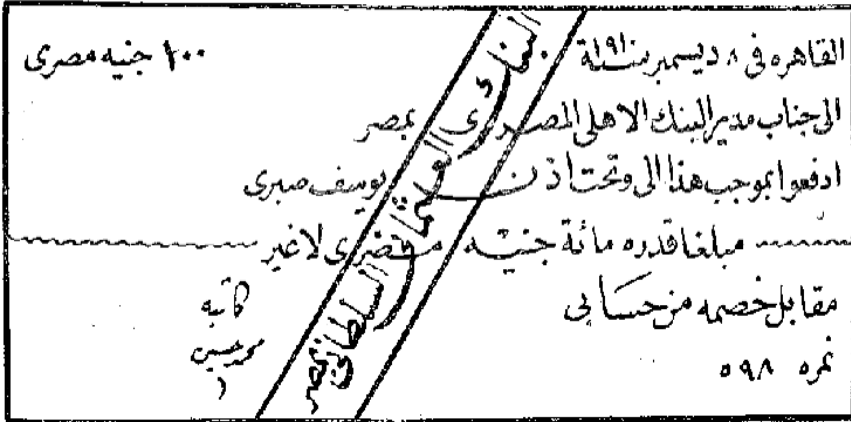 القاهره فى ٨ ديسمبر سنة ١٩١٠
١٠٠ جنيه مصرى
الى جناب مدير البنك الاهلى المصرى بمصر
ادفعوا بموجب هذا الى وتحت اذن يوسف صبرى
مبلغا قدره مائة جنيه مصرى لا غير
مقابل خصمه من حسابى
نمره ٥٩٨
كاتبه
محمد حسين
البنك العثمانى السلطانى بمصر